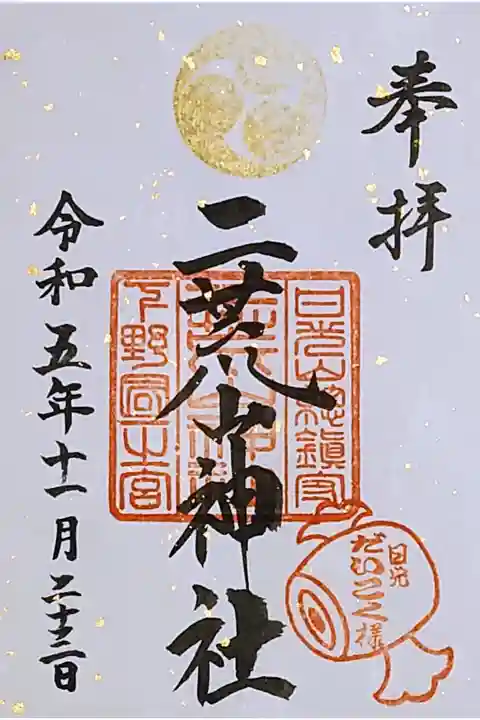 奉拝
二荒山神社
日光山總鎮守
下野國一之宮
日光
だいこく様
令和五年十一月二十三日